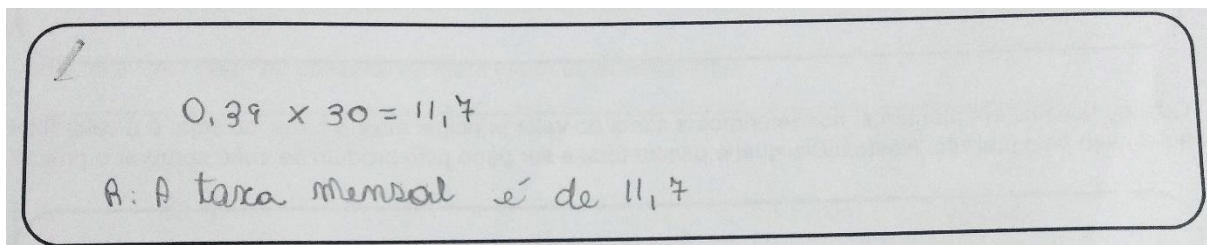 0,39 x 30 = 11,7
R: A taxa mensal é de 11,7